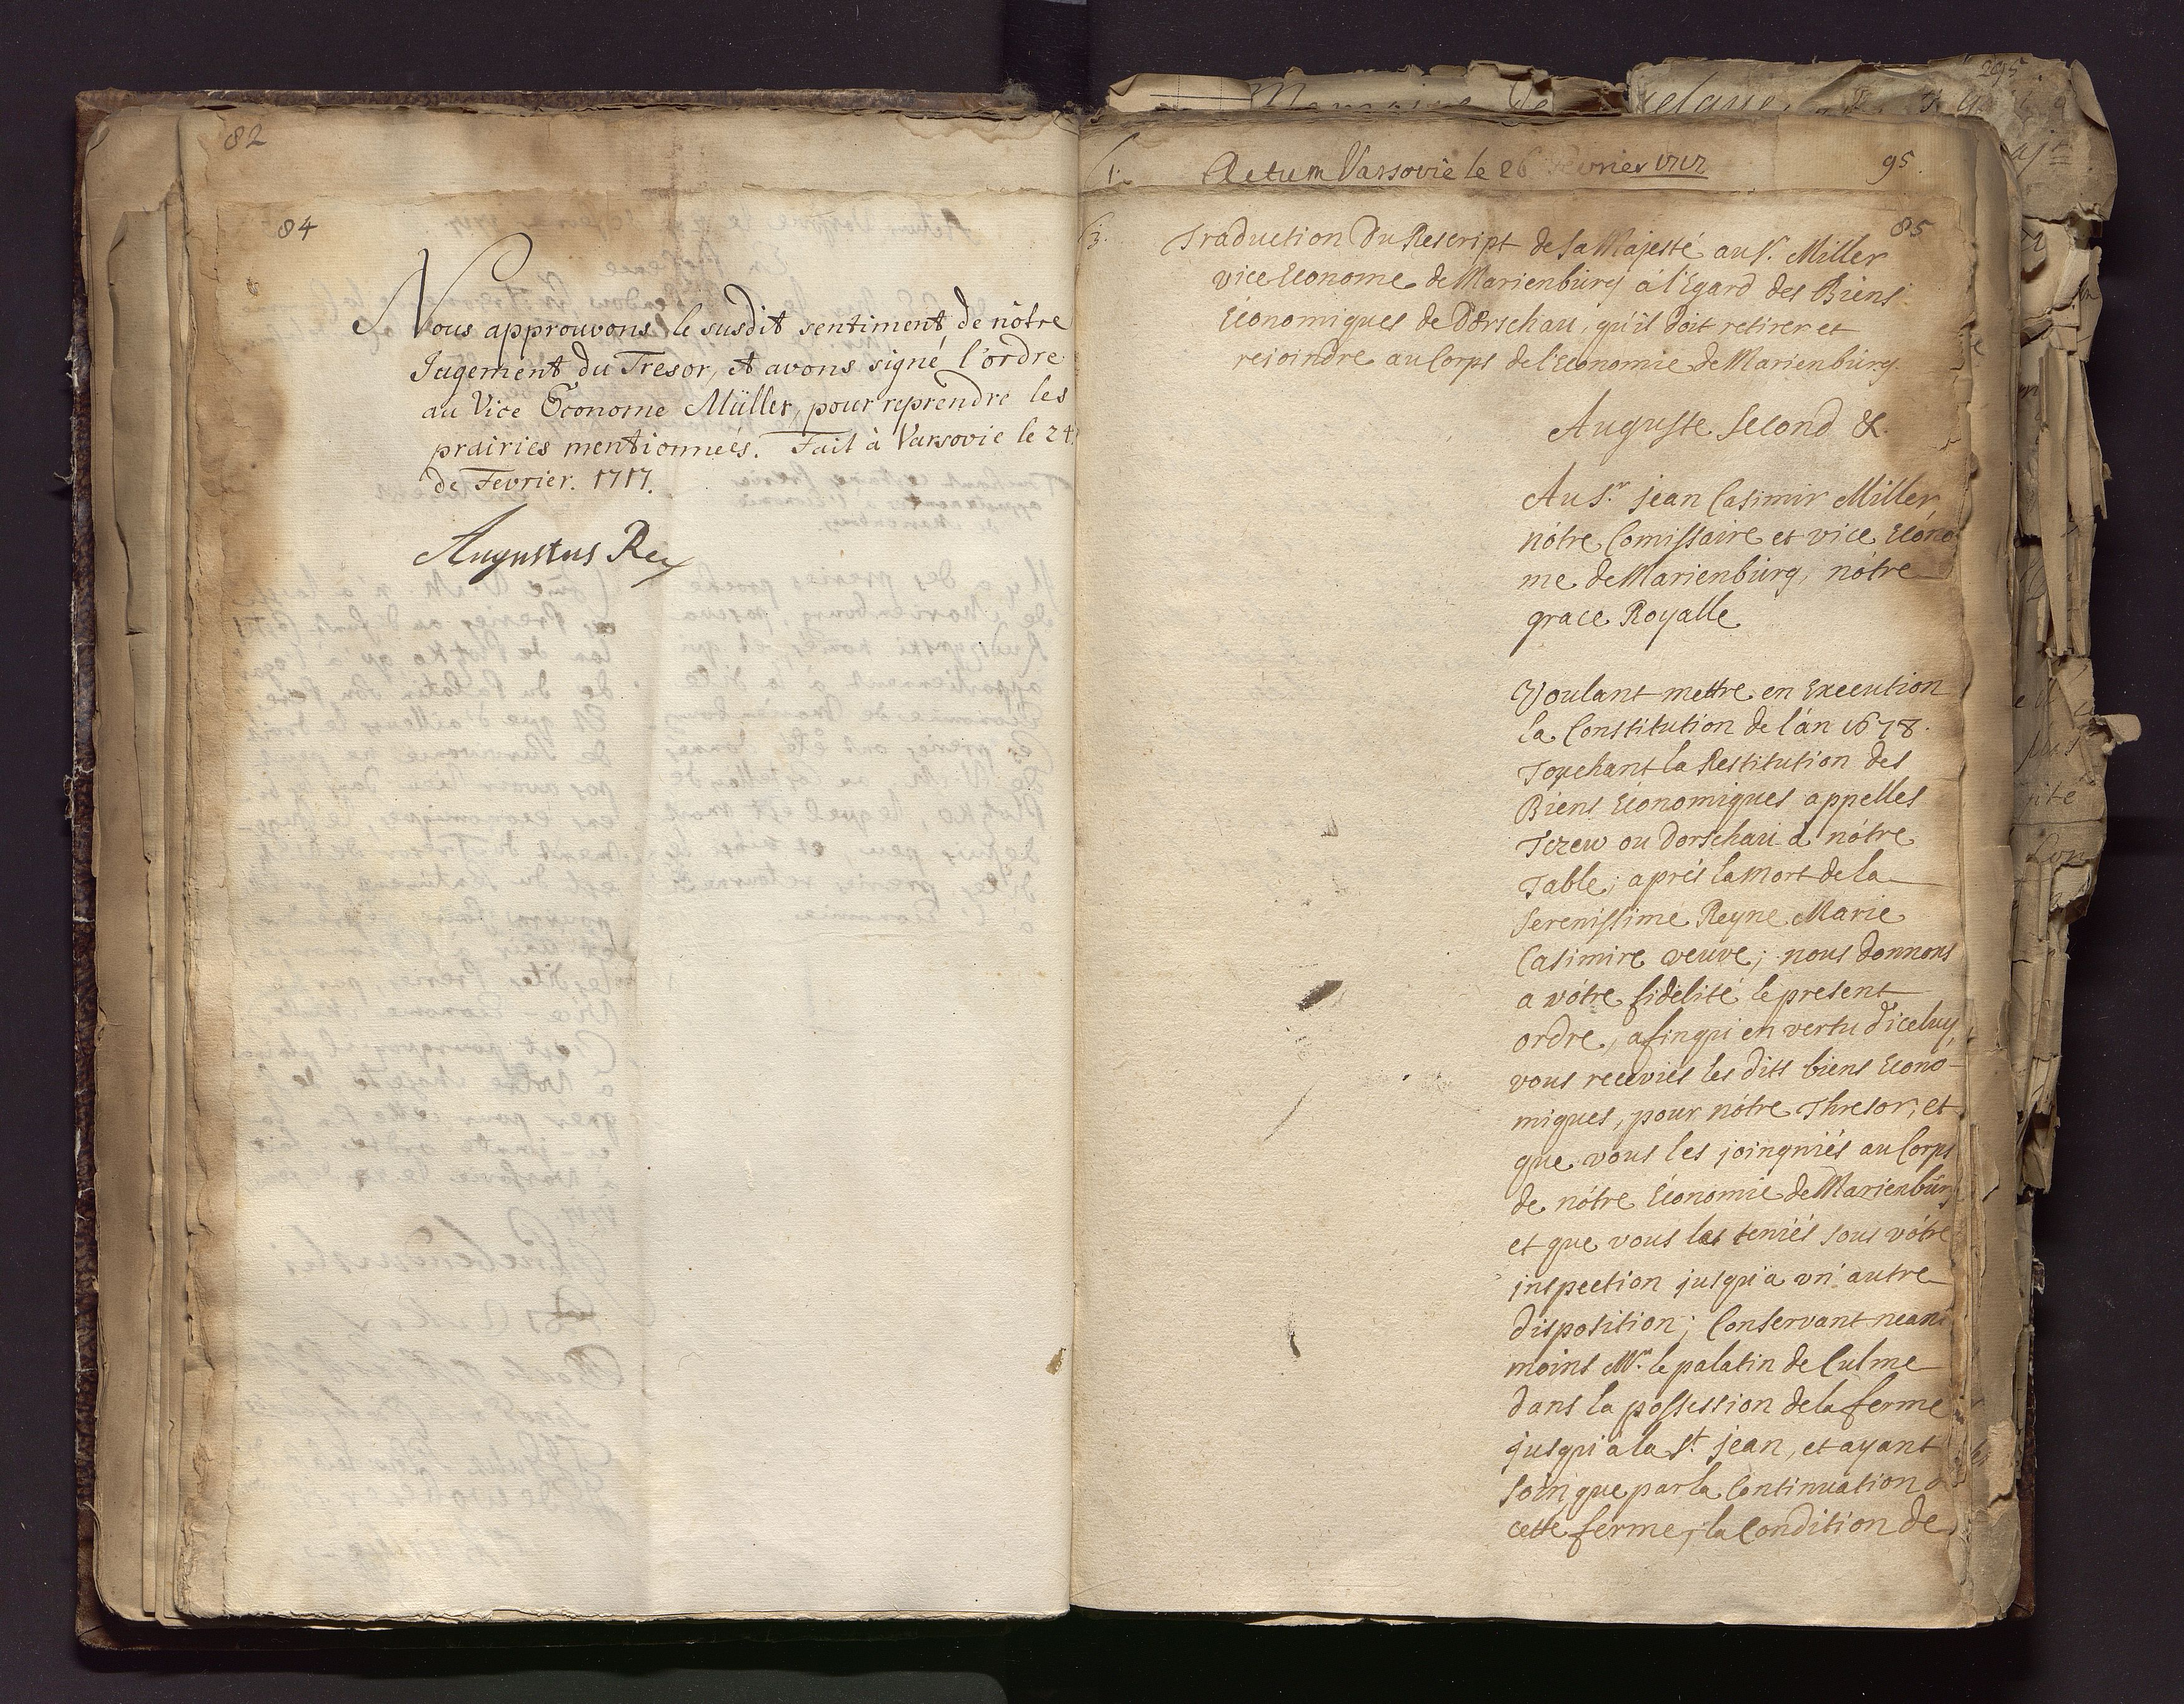 82
84
Nous approuvons le susdit sentiment de nôtre
Jugement du Tresor, et avons signé l'ordre
au Vice Économe Müller, pour reprendre les
prairies mentionneés. Fait à Varsovie le 24
de Fevrier. 1717.
Augustus Rex
295
1. Actum Varsovie le 26 Fevrier 1717
95
3.
85
Traduction Du Rescript de Sa Majesté au Sr. Miller
vice Econome de Marienbürg à l'Egard des Biens
Economiques de Dörschau, qu'il doit retirer et
rejoindre au Corps de l'Economie de Marienbürg.
Auguste Second &.
Au Sr. jean Casimir Miller,
nótre Comissaire et vice Econo
me de Marienbürg, nótre
grace Royalle
Voulant mettre en Execution
la Constitution de l'án 1678.
Touchant la Restitution des
Biens Economiques appelles
Tczew ou Dorschau à nótre
Table; aprés la Mort de la
Serenissime Reyne Marie
Casimire veuve; nous donnons
a vótre fidelité le present
ordre, afinqu'en vertu d'iceluy
vous receviés les dits biens Econo-
miques, pour nótre Thresor, et
que vous les joingniés au Corps
de nótre Economie de Marienbürg
et que vous les teniés sous vótre
inspection jusqu'a un' autre
disposition; Conservant nean
moins Mr. le palatin de Culme
dans la possession de la ferme
jusqu'a la St. jean, et ayant
soin que par la Continuation d
cette ferme, la Condition de